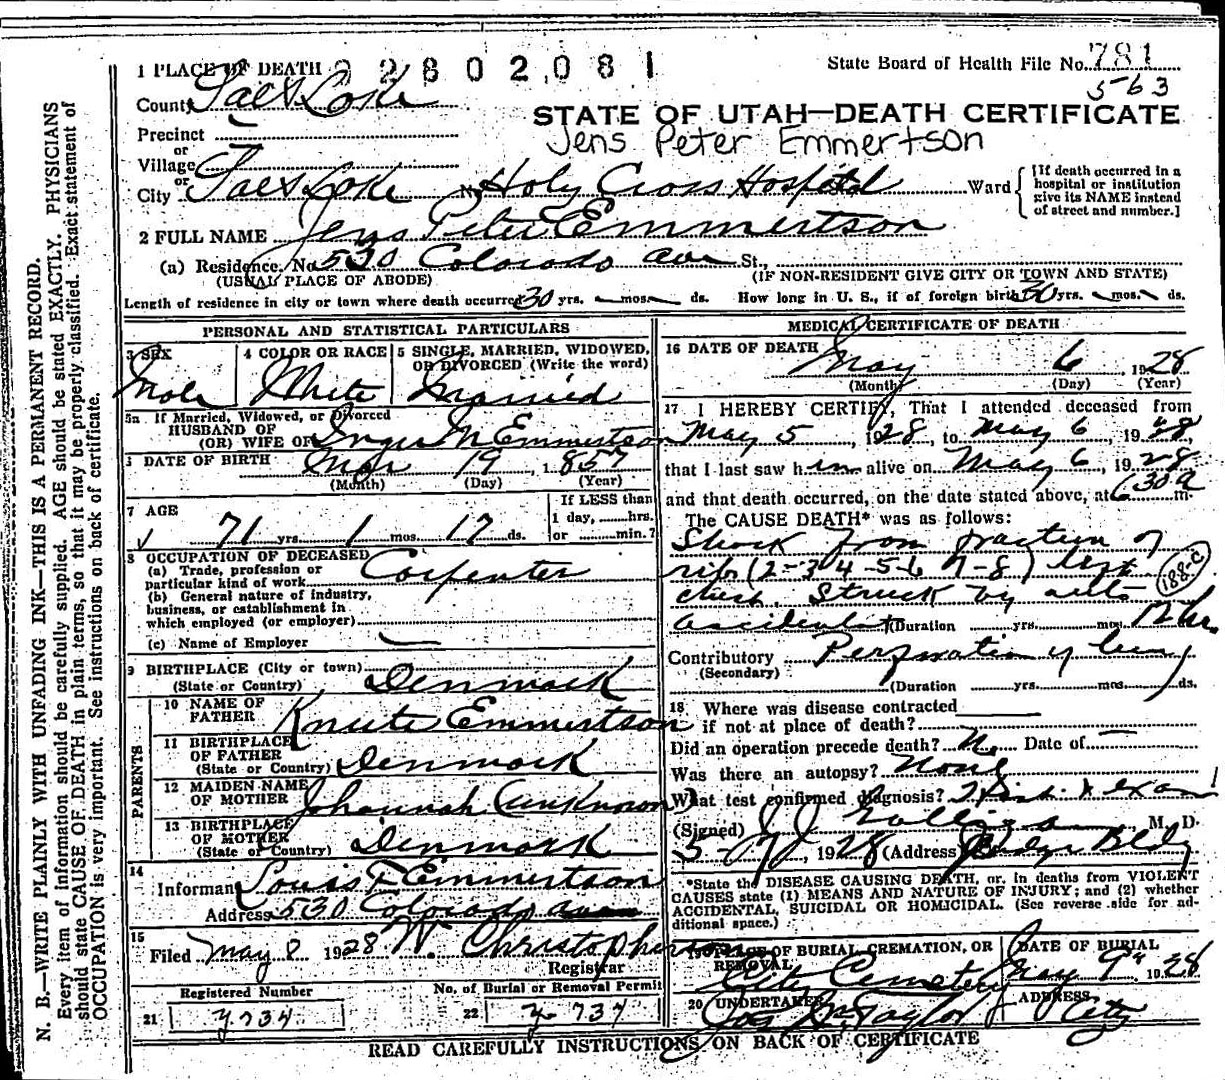 1 PLACE OF DEATH 2 2 8 0 2 0 8 1
State Board of Health File No. 781
563
County Salt Lake
STATE OF UTAH—DEATH CERTIFICATE
Precinct
Jens Peter Emmertson
or
Village
or
City Salt Lake No. Holy Cross Hospital Ward [If death occurred in a hospital or institution give its NAME instead of street and number.]
2 FULL NAME Jens Peter Emmertson
(a) Residence. No. 530 Colorado ave St.,
(USUAL PLACE OF ABODE) (IF NON-RESIDENT GIVE CITY OR TOWN AND STATE)
Length of residence in city or town where death occurred 30 yrs. mos. ds. How long in U. S., if of foreign birth 30 yrs. mos. ds.
PERSONAL AND STATISTICAL PARTICULARS
3 SEX 4 COLOR OR RACE 5 SINGLE, MARRIED, WIDOWED, OR DIVORCED (Write the word)
Male White Married
5a If Married, Widowed, or Divorced
HUSBAND OF
(OR) WIFE OF Inger M Emmertson
6 DATE OF BIRTH Mar 19, 1857
(Month) (Day) (Year)
7 AGE If LESS than
71 yrs. 1 mos. 17 ds. 1 day, hrs.
or min.?
8 OCCUPATION OF DECEASED
(a) Trade, profession or particular kind of work Carpenter
(b) General nature of industry,
business, or establishment in
which employed (or employer)
(c) Name of Employer
9 BIRTHPLACE (City or town)
(State or Country) Denmark
PARENTS
10 NAME OF FATHER Knute Emmertson
11 BIRTHPLACE OF FATHER
(State or Country) Denmark
12 MAIDEN NAME OF MOTHER Johannah Unknown
13 BIRTHPLACE OF MOTHER
(State or Country) Denmark
14
Informant Louis F Emmertson
Address 530 Colorado ave
15
Filed May 8 1928 W. Christopherson
Registrar
Registered Number No. of Burial or Removal Permit
21 22
MEDICAL CERTIFICATE OF DEATH
16 DATE OF DEATH
May 6, 1928
(Month) (Day) (Year)
17 I HEREBY CERTIFY, That I attended deceased from
May 5, 1928, to May 6, 1928,
that I last saw him alive on May 6, 1928
and that death occurred, on the date stated above, at 6 30 a m.
The CAUSE DEATH* was as follows:
Shock from fracture of
ribs (2-3-4-5-6-7-8) left 188-c
chest. Struck by auto
accidental (Duration yrs. mos. 12 hr.
Contributory Perforation of lung
(Secondary)
(Duration yrs. mos. ds.
18. Where was disease contracted
if not at place of death?
Did an operation precede death? No Date of
Was there an autopsy? None
What test confirmed diagnosis?
(Signed) M. D.
5-7, 1928 (Address) Judge Bldg
*State the DISEASE CAUSING DEATH, or, in deaths from VIOLENT
CAUSES state (1) MEANS AND NATURE OF INJURY; and (2) whether
ACCIDENTAL, SUICIDAL OR HOMICIDAL. (See reverse side for ad-
ditional space.)
19 PLACE OF BURIAL, CREMATION, OR REMOVAL DATE OF BURIAL
City Cemetery May 9" 1928
20 UNDERTAKER ADDRESS
Jos Wm Taylor City
READ CAREFULLY INSTRUCTIONS ON BACK OF CERTIFICATE
N. B.—WRITE PLAINLY WITH UNFADING INK—THIS IS A PERMANENT RECORD.
Every item of information should be carefully supplied. AGE should be stated EXACTLY. PHYSICIANS
should state CAUSE OF DEATH in plain terms, so that it may be properly classified. Exact statement of
OCCUPATION is very important. See instructions on back of certificate.